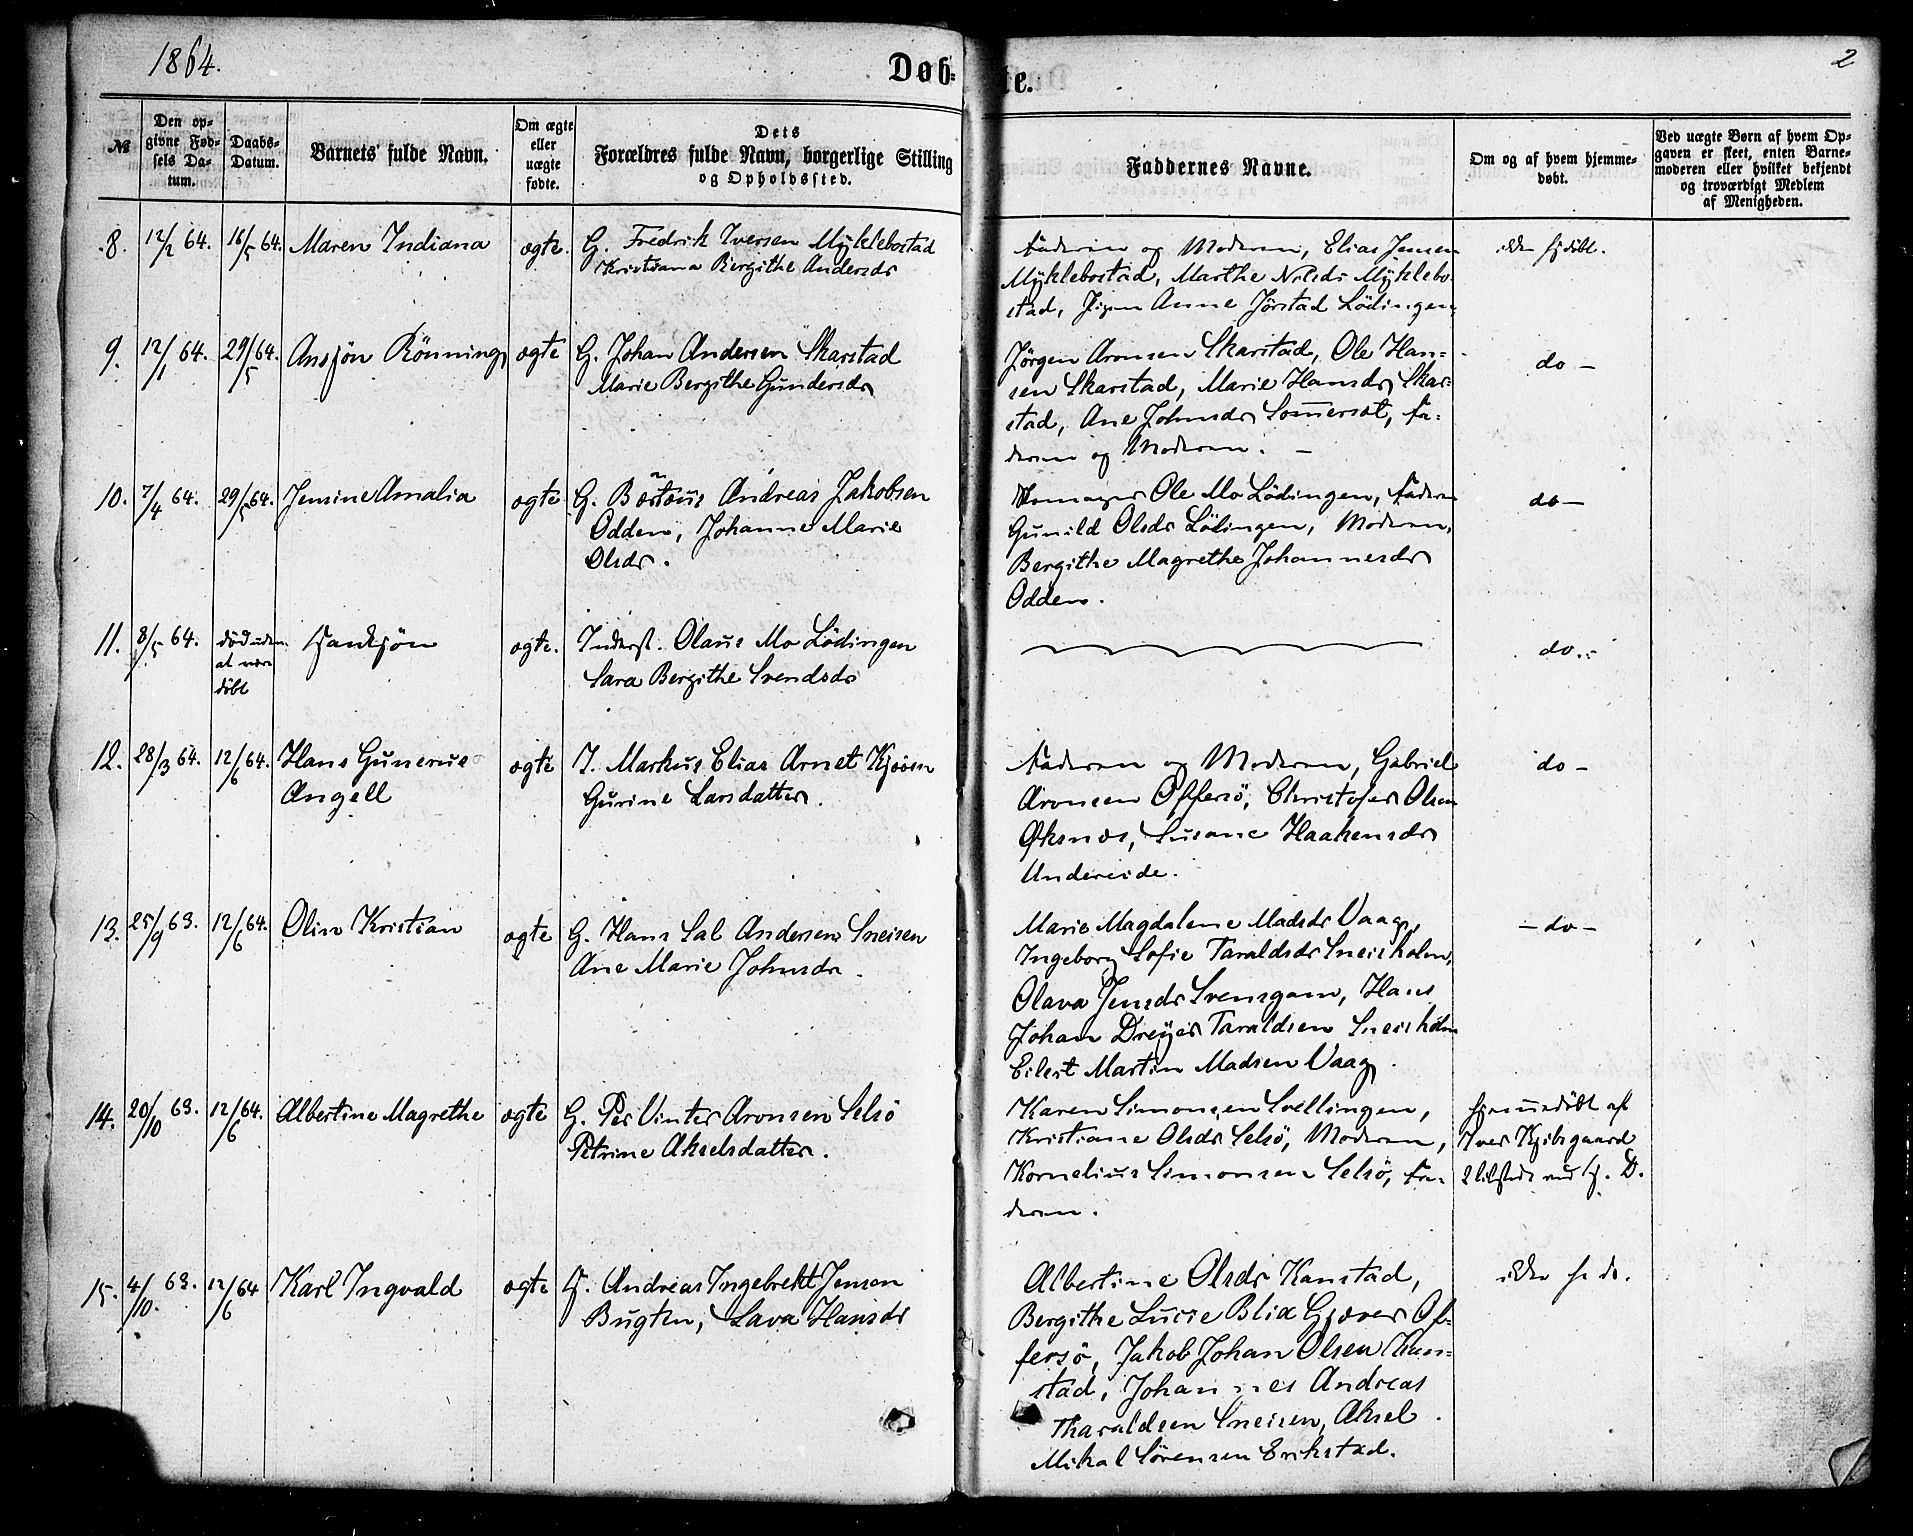 1864.
Døb-
te.
2
№
Den op-
givne Fød-
sels Da-
tum.
Daabs-
Datum.
Barnets fulde Navn.
Om ægte
eller
uægte
fødte.
Dets
Forældres fulde Navn, borgerlige Stilling
og Opholdssted.
Faddernes Navne.
Om og af hvem hjemme-
døbt.
Ved uægte Børn af hvem Op-
gaven er skeet, enten Barne-
moderen eller hvilket bekjendt
og troværdigt Medlem
af Menigheden.
8. 12/2 64. 16/5 64. Maren Indiana ægte. G. Fredrik Iversen Myklebostad
Kristiana Bergithe Andersdr
Faderen og Moderen, Elias Jensen
Myklebostad, Marthe Nilsdr Myklebo-
stad, Pigen Anne Jörstad Lödingen
ikke hjdöbt.
9. 12/1 64. 29/5 64. Ansjön Rönning ægte G. Johan Andersen Skarstad
Marie Bergithe Gundersdr
Jørgen Aronsen Skarstad, Ole Han-
sen Skarstad, Marie Hansdr Skar-
stad, Ane Johnsdr Somerset, Fa-
deren og Moderen. —
do —
10. 7/4 64. 29/5 64. Jensine Amalia ægte G. Andreas Jakobsen
Odden, Johanne Marie
Olsdr.
Ole Mo Lödingen, Faderen
Gunild Olsdr Lödingen, Moderen,
Bergithe Magrethe Johannesdr
Odden.
do —
11. 8/5 64. död uden
at være
döbt
ægte. Inderst. Olaus Mo Lödingen
Sara Bergithe Svendsdr
do.-
12. 28/3 64. 12/6 64. Hans Gunerus
Angell
ægte I. Markus Elias Arnet Kjöen
Gurine Larsdatter.
Faderen og Moderen, Gabriel
Aronsen Offersö, Christofer Olsen
Øksnes, Susane Haakensdr
Undereide.
do —
13. 25/9 63. 12/6 64. Olin Kristian ægte G. Hans Sal Andersen Sneisen
Ane Marie Johnsdr.
Marie Magdalene Madsdr Vaag,
Ingeborg Sofie Taraldsdr Sneisholm,
Olava Jensdr Svensgam, Hans
Johan Dreyer Taraldsen Sneisholm
Eilert Martin Madsen Vaag.
— do —
14. 20/10 63. 12/6 64. Albertine Magrethe ægte G. Per Vinter Aronsen Selsö
Petrine Akselsdatter.
Karen Simonsen Svellingen,
Kristiane Olsdr Selsö, Moderen,
Kornelius Simonsen Selsö, Fa-
deren.
hjemmedöbt af
Iver Kjibsgaard
2 tilstede ved Hj. D.
15. 4/10. 63. 12/6 64 Karl Ingvald ægte G. Andreas Ingebrekt Jensen
Bugten, Lava Hansdr
Albertine Olsdr Kanstad,
Bergithe Lucie Blix Gjæver Of-
fersö, Jakob Johan Olsen Kan-
stad, Johannes Andreas
Tharaldsen Sneisen, Aksel
Mikal Sørensen Erikstad.
ikke hj do.